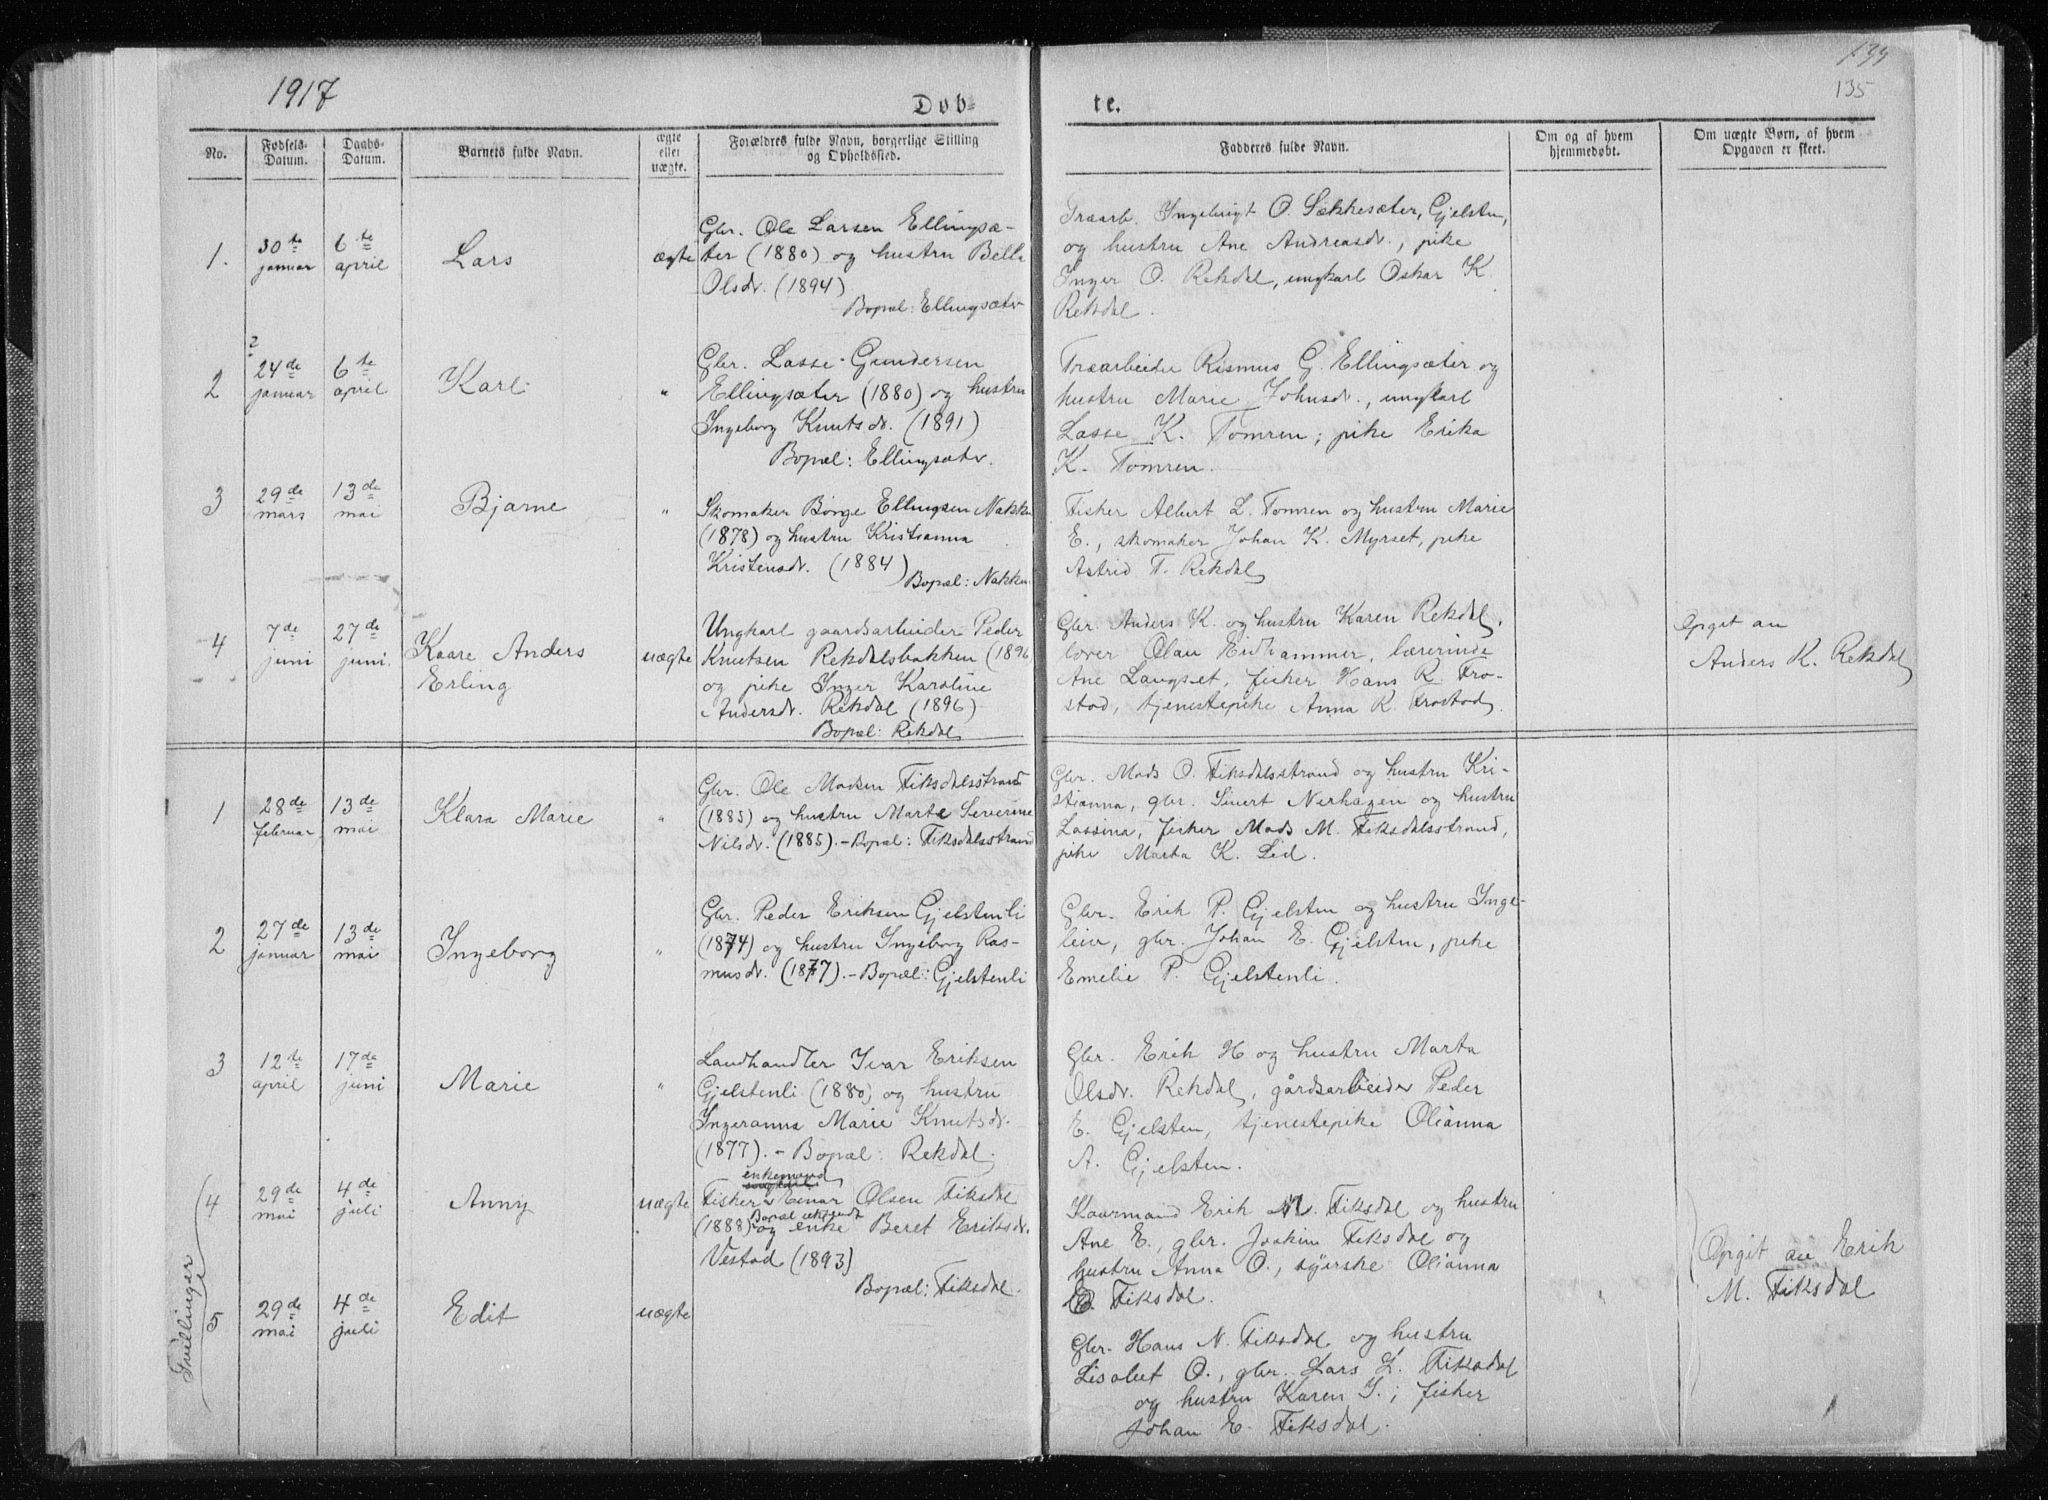 1917
Døb-
te.
135
No.
Fødsels-
Datum.
Daabs-
Datum.
Barnets fulde Navn.
ægte
eller
uægte.
Forældres fulde Navn, borgerlige Stilling
og Opholdssted.
Fadderes fulde Navn.
Om og af hvem
hjemmedøbt.
Om uægte Børn, af hvem
Opgaven er skeet.
1.
30te
januar
6te
april
Lars
ægte
Gbr. Ole Larsen Ellingsæ-
ter (1880) og hustru Bella
Olsdr. (1894)
Bopæl: Ellingsæter
Træarb. Ingebrigt O. Sækkesæter, Gjelsten,
og hustru Ane Andreasdr., pike
Inger O. Rekdal, ungkarl Oskar K.
Rekdal.
2
?
24de
januar
6te
april
Karl
"
Gbr. Lasse Gundersen
Ellingsæter (1880) og hustru
Ingeborg Knutsdr. (1891)
Bopæl: Ellingsæter.
Træarbeider Rasmus G. Ellingsæter og
hustru Marie Johnsdr., ungkarl
Lasse K. Tomren; pike Erika
K. Tomren.
3
29de
mars
13de
mai
Bjarne
"
Skomaker Børge Ellingsen Nakken
(1878) og hustru Kristianna
Kristensdr. (1884)
Bopæl: Nakken
Fisker Albert L. Tomren og hustru Marie
E., skomaker Johan K. Myrset, pike
Astrid T. Rekdal
4
7de
juni
27de
juni.
Kaare Anders
Erling
uægte
Ungkarl gaardsarbeider Peder
Knutsen Rekdalsbakken (1896
og pike Inger Karoline
Andersdr. Rekdal (1896)
Bopæl: Rekdal
Gbr. Anders K. og hustru Karen Rekdal,
lærer Olav Eidhammer, lærerinde
Ane Langset, fisker Hans R. Fro-
stad, tjenestepike Anna R. Frostad.
Opgit av
Anders K. Rekdal
1
28de
februar
13de
mai
Klara Marie
"
Gbr. Ole Madsen Fiksdalsstrand
(1885) og hustru Marte Severine
Nilsdr. (1885). - Bopæl: Fiksdalsstrand
Gbr. Mads O. Fiksdalsstrand og hustru Kri-
stianna, gbr. Sivert Nerhagen og hustru
Lassina, fisker Mads M. Fiksdalsstrand,
pike Marta K. Lid.
2
27de
januar
13de
mai
Ingeborg
"
Gbr. Peder Eriksen Gjelstenli
(1874) og hustru Ingeborg Ras-
musdr. (1877). - Bopæl: Gjelstenli
Gbr. Erik P. Gjelsten og hustru Inge-
leiv, gbr. Johan E. Gjelsten, pike
Emelie P. Gjelstenli.
3
12te
april
17de
juni
Marie
"
Landhandler Ivar Eriksen
Gjelstenli (1880) og hustru
Ingeranna Marie Knutsdr.
(1877). - Bopæl: Rekdal.
Gbr. Erik H og hustru Marta
Olsdr. Rekdal, gårdsarbeider Peder
E. Gjelsten, tjenestepike Olianna
A. Gjelsten.
Tvillinger
4
29de
mai
4de
juli
Anny
uægte
enkemand
Fisker Einar Olsen Fiksdal
(1888) og enke Beret Eriksdr.
Vestad (1893)
Bopæl: Fiksdal.
Kaarmand Erik M. Fiksdal og hustru
Ane E., gbr. Joakim Fiksdal og
hustru Anna O., syerske Olianna
E. Fiksdal.
Opgit av Erik
M. Fiksdal
5
29de
mai
4de
juli
Edit
uægte
Gbr. Hans N. Fiksdal og hustru
Lisabet O., gbr. Lars L. Fiksdal
og hustru Karen I.; fisker
Johan E. Fiksdal.